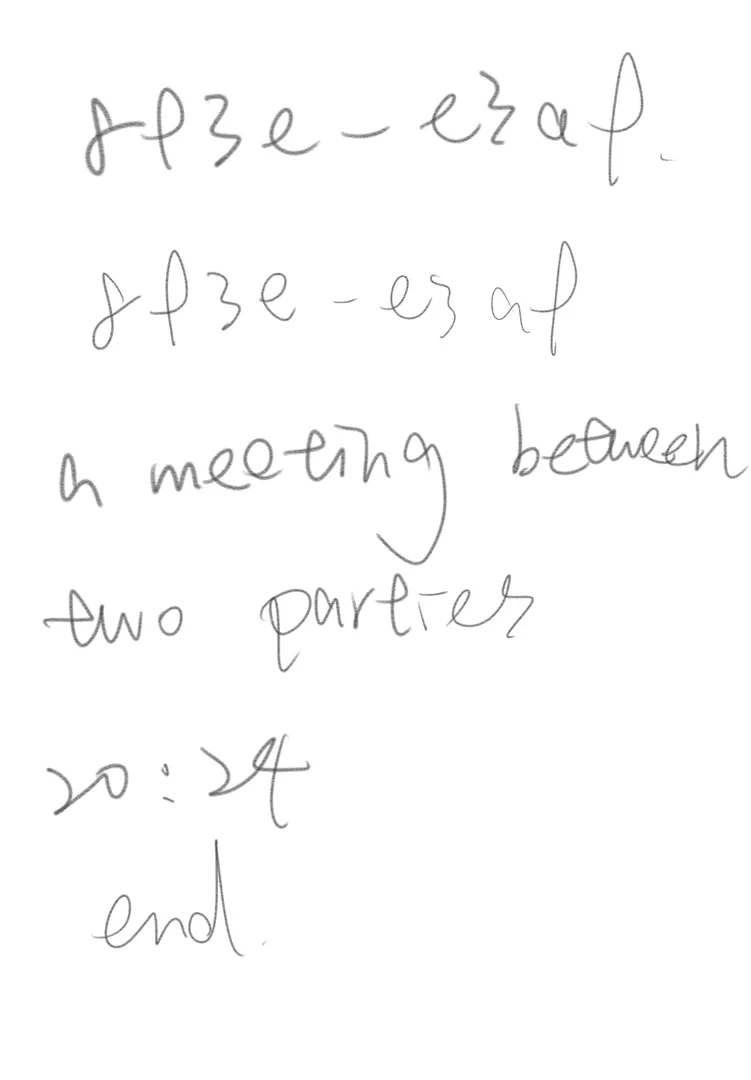 8f3e-e3af.
8f3e-e3af
a meeting between
two parties
20:24
end.